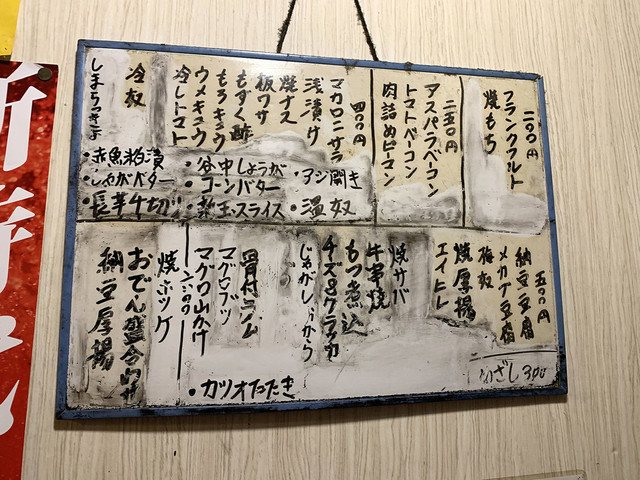 二〇〇円
フランクフルト
焼もち
二五〇円
アスパラベーコン
トマトベーコン
肉詰めピーマン
四〇〇円
マカロニサラ
浅漬け
焼ナス
板ワサ
もずく酢
もろキュウ
ウメキュウ
冷しトマト
冷奴
・アジ開き
・温奴
・谷中しょうが
・コーンバター
・新玉スライス
・赤魚粕漬
・じゃがバター
・長芋千切り
五〇〇円
納豆豆腐
メカブ豆腐
梅奴
エイヒレ
焼厚揚
焼サバ
牛串焼
もつ煮込
チーズ&クラッカ
じゃがしおから
骨付ハム
マグロブツ
マグロ山かけ
焼ホッケ
おでん盛合わせ
納豆厚揚
・カツオたたき
めざし300